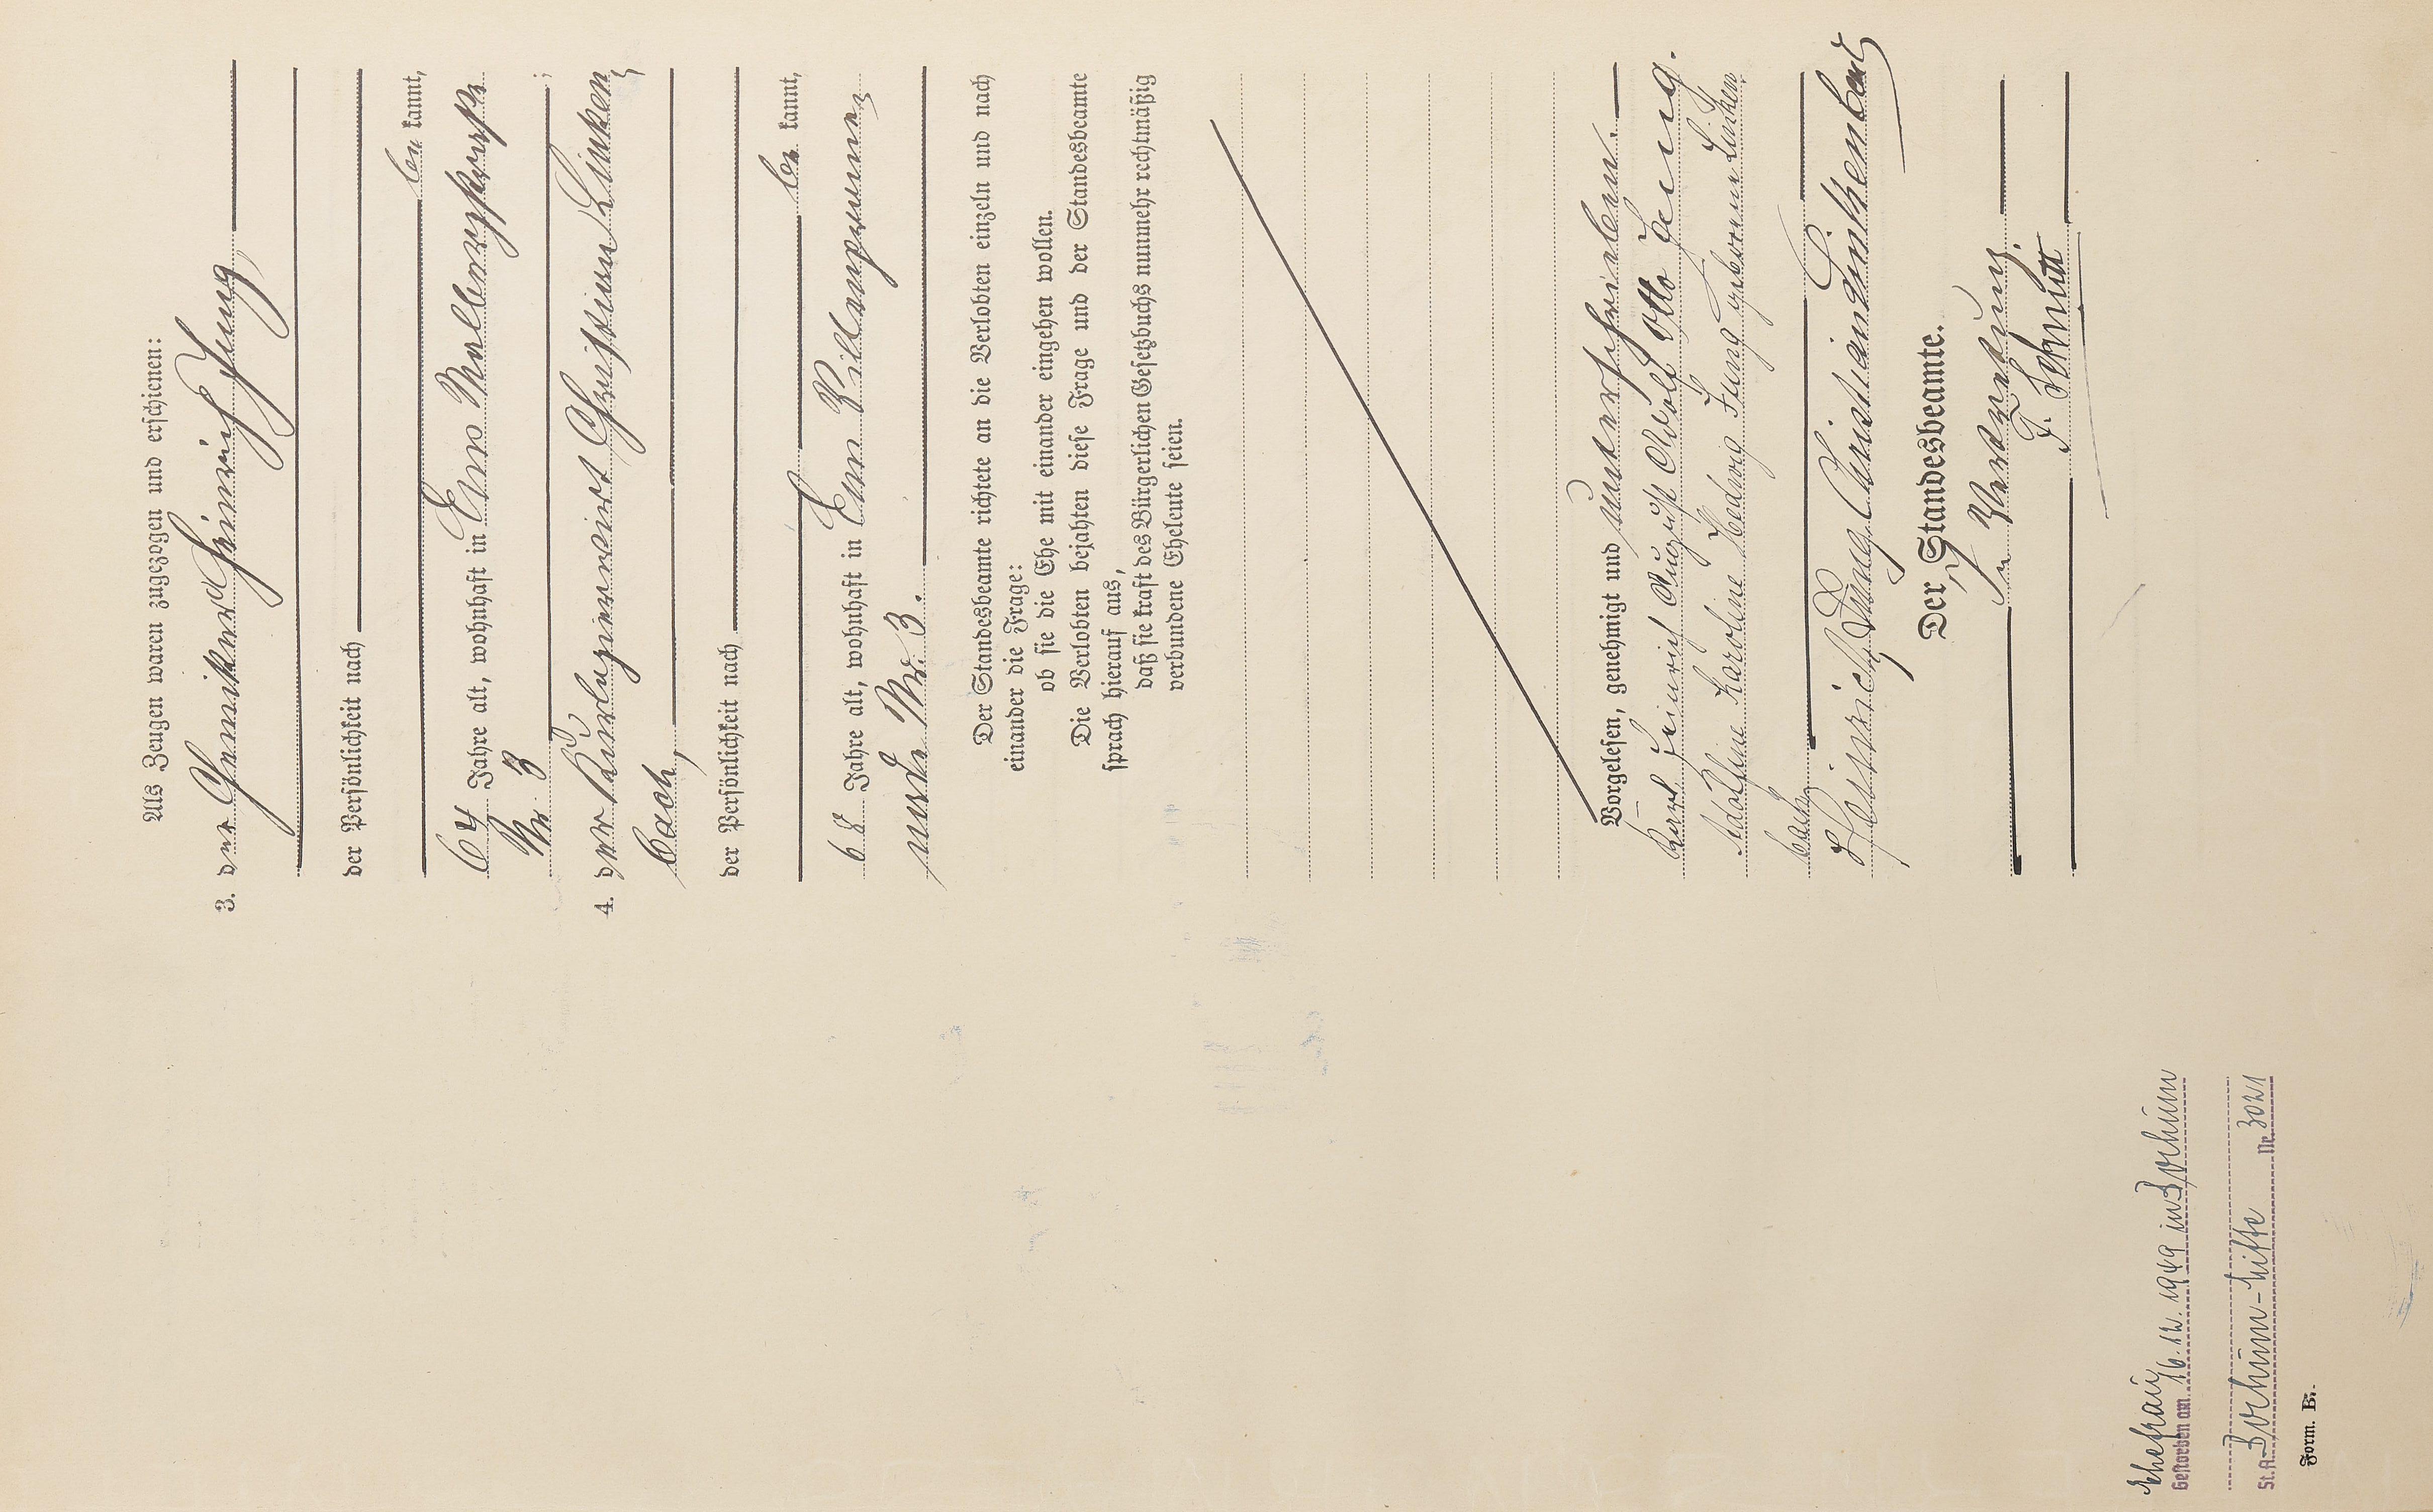 Als Zeugen waren zugezogen und erschienen:
3. der Heinrich Jung,
der Persönlichkeit nach
be kannt,
64 Jahre alt, wohnhaft in Ems
Nr. 3 ;
4. der Christian Linken
bach,
der Persönlichkeit nach
be kannt,
68 Jahre alt, wohnhaft in Ems
Nr. 3.
Der Standesbeamte richtete an die Verlobten einzeln und nach
einander die Frage:
ob sie die Ehe mit einander eingehen wollen.
Die Verlobten bejahten diese Frage und der Standesbeamte
sprach hierauf aus,
daß sie kraft des Bürgerlichen Gesetzbuchs nunmehr rechtmäßig
verbundene Eheleute seien.
Vorgelesen, genehmigt und unterschrieben.
Karl Heinrich August Adolf Otto Jung.
Adolfine Karoline Hedwig Jung geborene Linken
bach
Heinrich Jung Christian Linkenbach
Der Standesbeamte.
In Vertretung.
F. Schmitt
Ehefrau
Gestorben am 16.12.1949 in Bochum
St.A. Bochum-Mitte Nr. 3021
Form. B.